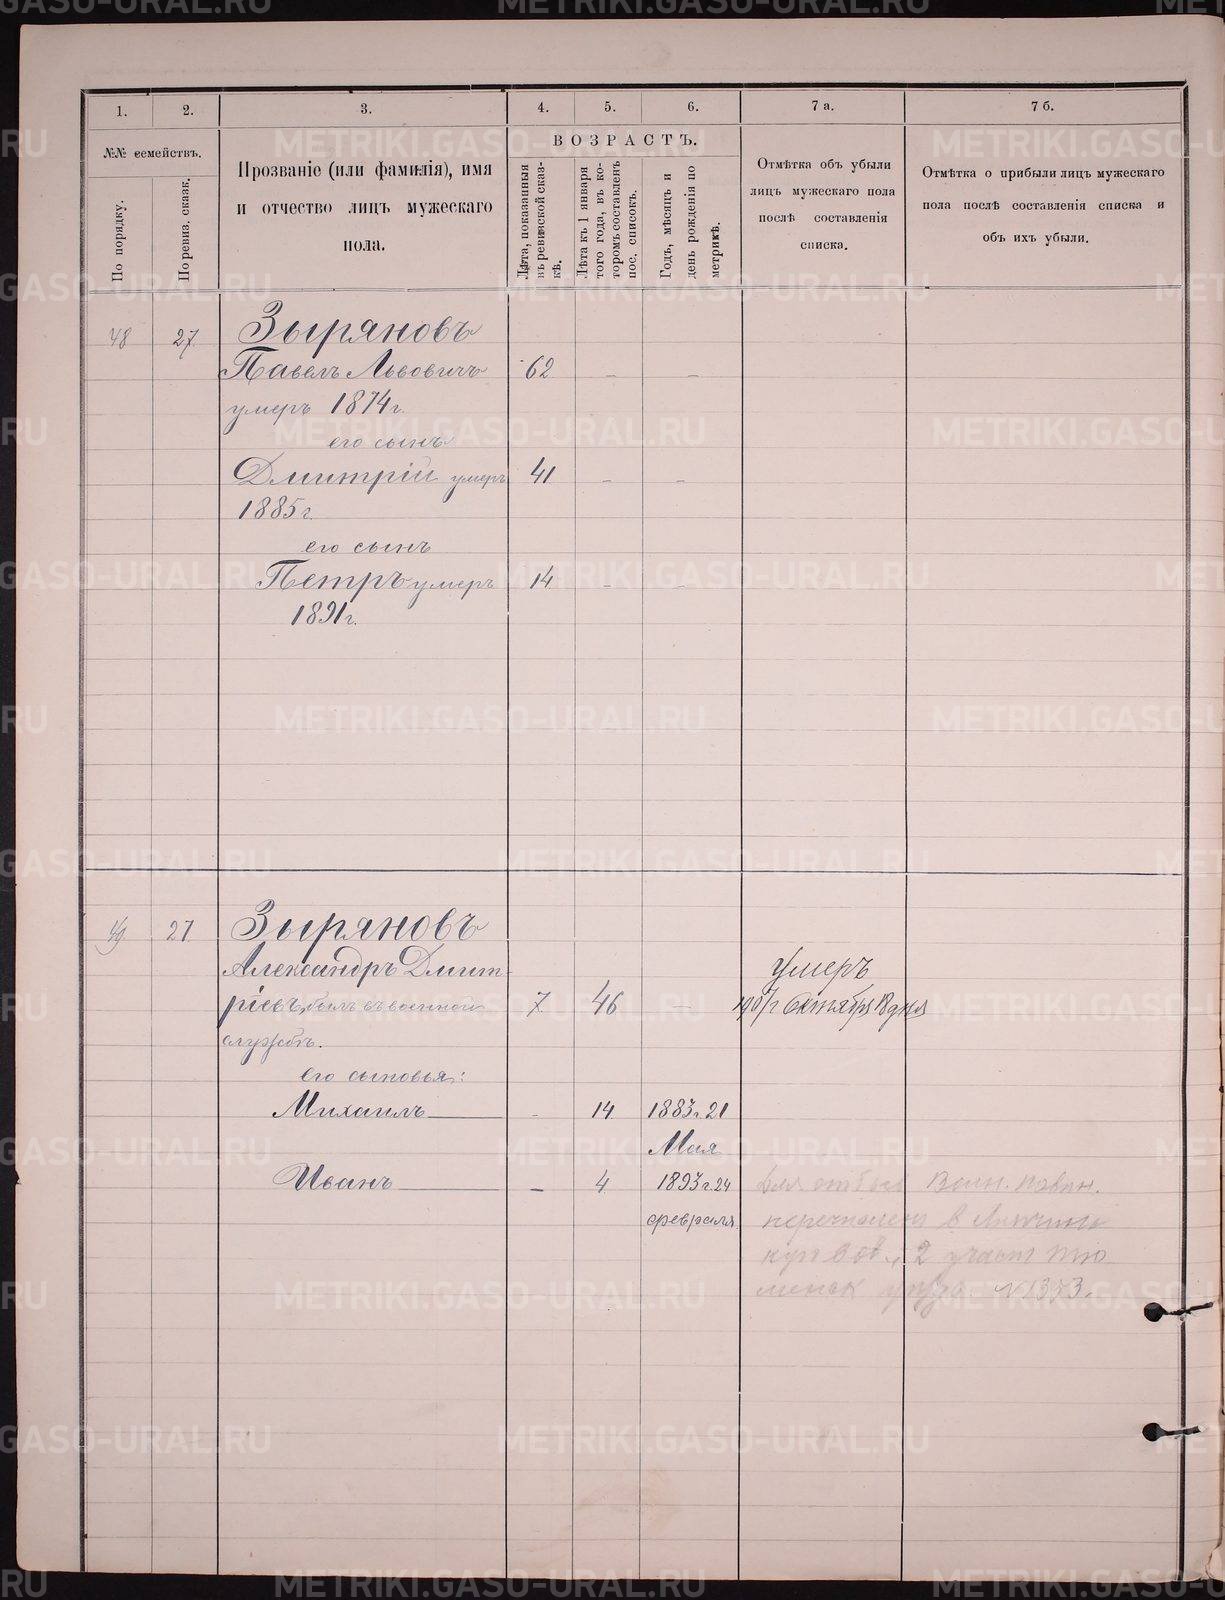 1.
2.
3.
4.
5.
6.
7 а.
7 б.
№№ семействъ.
По порядку.
По ревиз. сказк.
Прозваніе (или фамилія), имя
и отчество лицъ мужескаго
пола.
ВОЗРАСТЪ.
Лѣта, показанныя
въ ревизской сказ-
кѣ.
Лѣта къ 1 января
того года, въ ко-
торомъ составленъ
пос. списокъ.
Годъ, мѣсяцъ и
день рожденія по
метрикѣ.
Отмѣтка объ убыли
лицъ мужескаго пола
послѣ составленія
списка.
Отмѣтка о прибыли лицъ мужескаго
пола послѣ составленія списка и
объ ихъ убыли.
48 27 Зыряновъ
Павелъ Львовичъ 62 – –
умеръ 1874 г.
его сынъ
Дмитрій умеръ 41 – –
1885 г.
его сынъ
Петръ умеръ 14 – –
1891 г.
49 27 Зыряновъ
Александръ Дмит-
ріевъ, былъ въ военной 7 46 –
службѣ.
умеръ
1907 г Октября 18 дня
его сыновья:
Михаилъ – 14 1883 г. 21
Мая
Иванъ – 4 1893 г. 24
февраля
Для отбыв Воин. повин.
перечислен в
2 участ Тю
менск уезда №1353.
METRIKI.GASO-URAL.RU